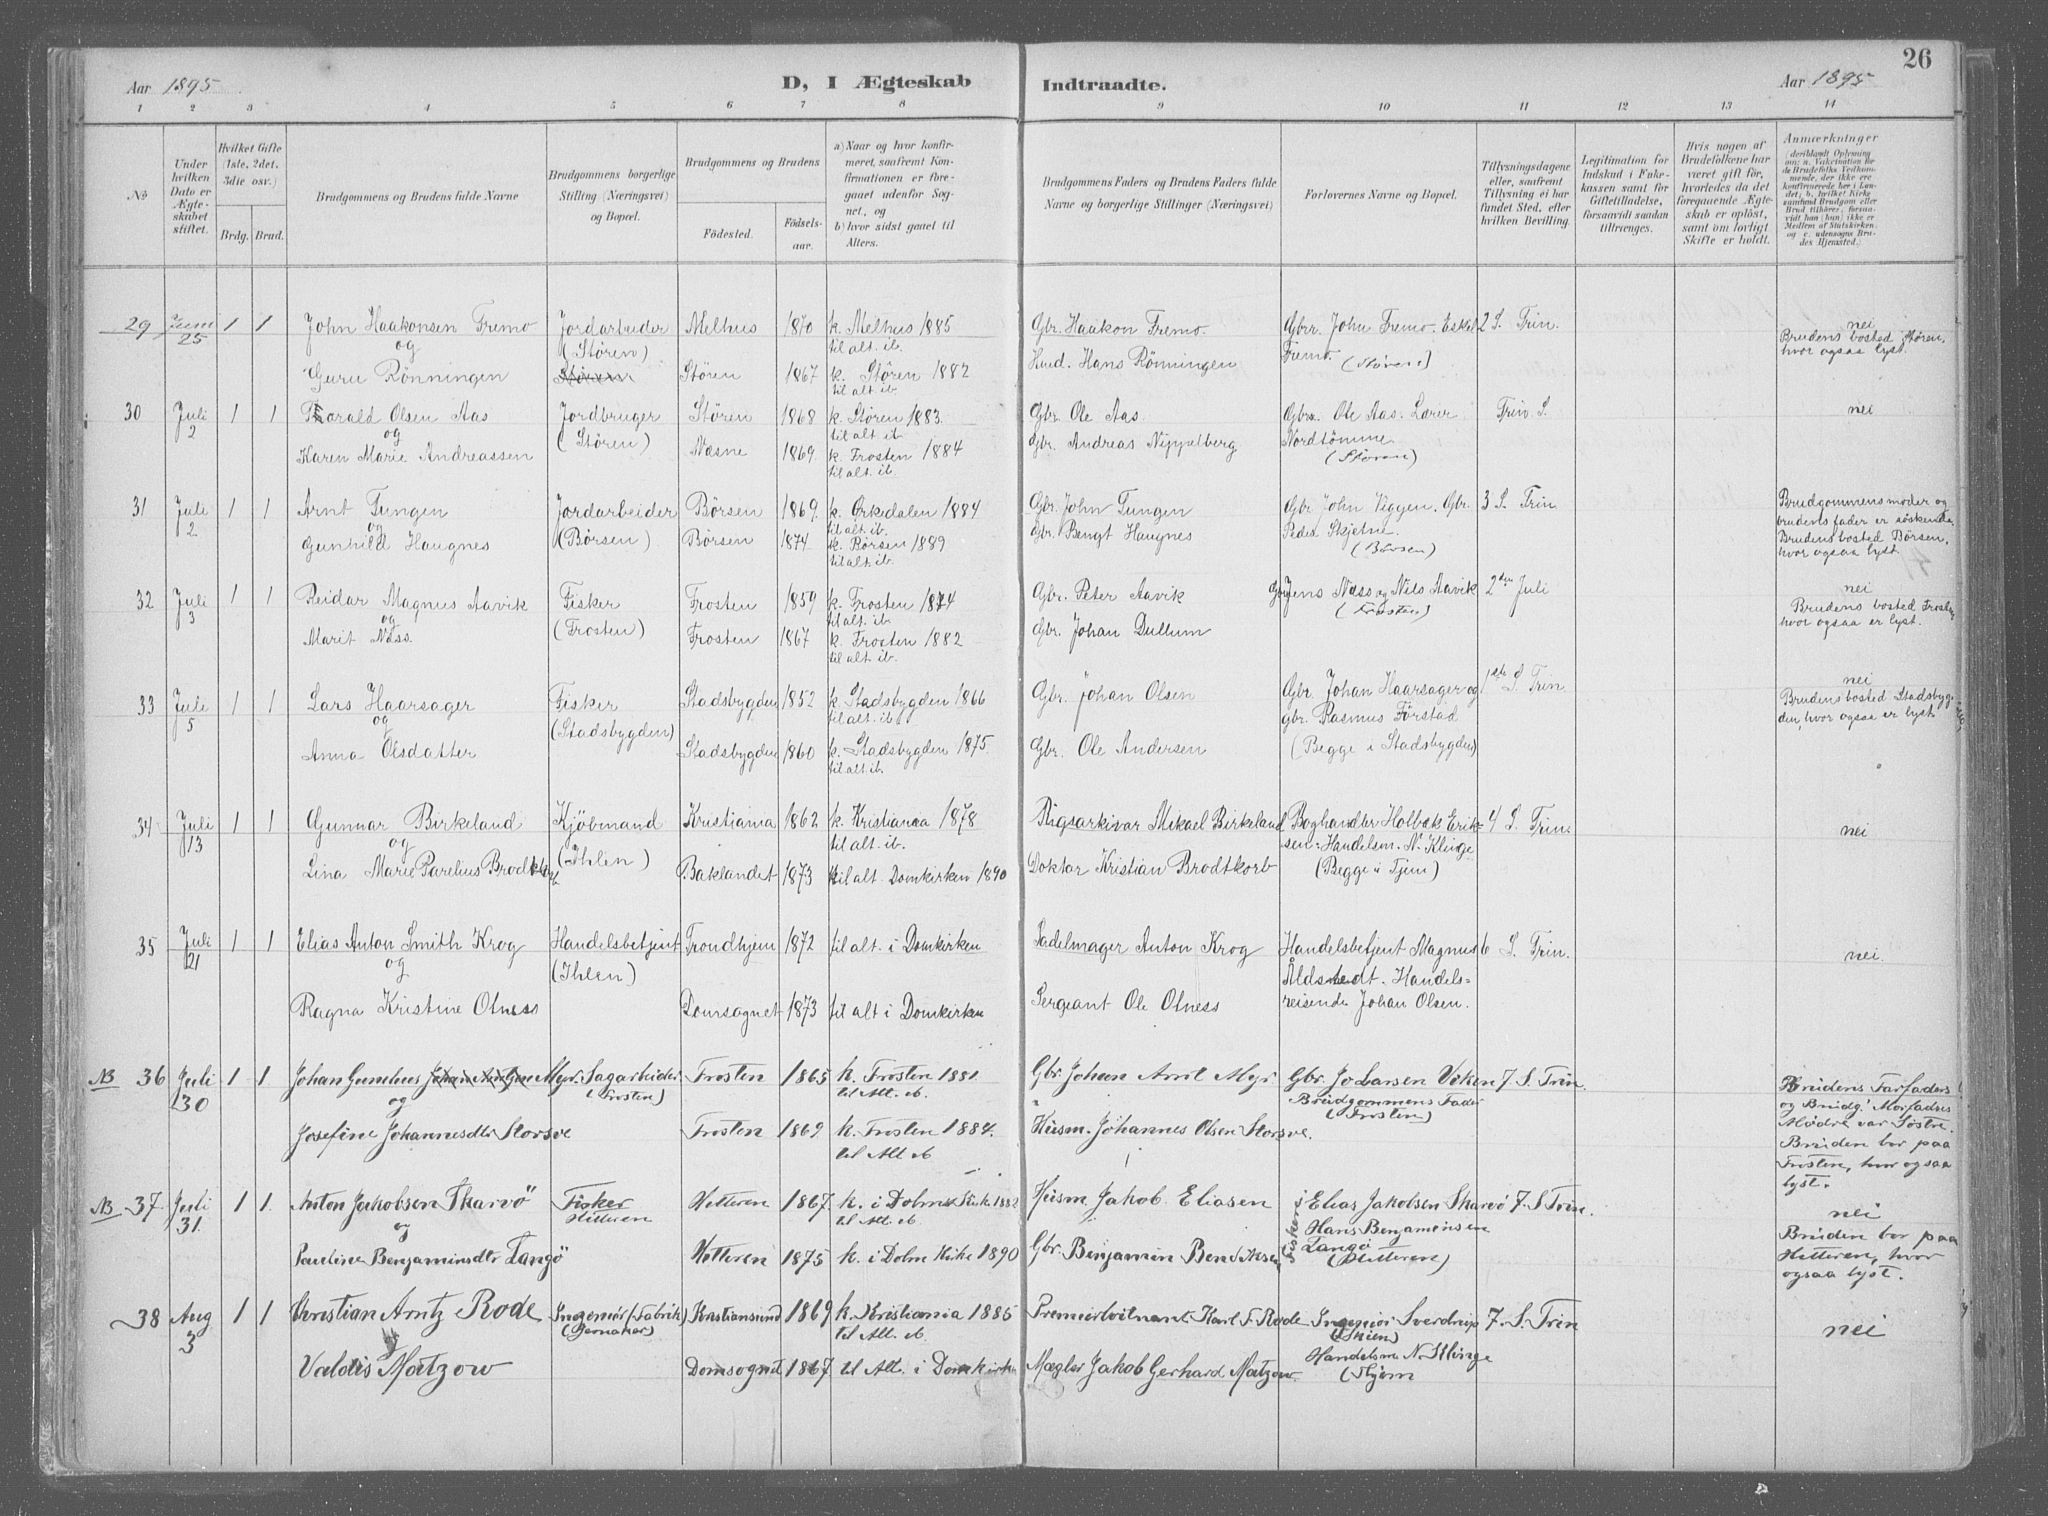 26
Aar 1895
D, I Ægteskab Indtraadte.
Aar 1895
1 2 3 4 5 6 7 8 9 10 11 12 13 14
No
Under hvilken Dato er Ægteskabet stiftet.
Hvilket Gifte (1ste, 2det, 3die osv.)
Brdg. Brud.
Brudgommens og Brudens fulde Navne
Brudgommens borgerlige Stilling (Næringsvei) og Bopæl.
Brudgommens og Brudens
Födested.
Födselsaar.
a) Naar og hvor konfirmeret, saafremt Konfirmationen er foregaaet udenfor Sognet, og
b) hvor sidst gaaet til Alters.
Brudgommens Faders og Brudens Faders fulde Navne og borgerlige Stillinger (Næringsvei)
Forlovernes Navne og Bopæl.
Tillysningsdagene eller, saafremt Tillysning ei har fundet Sted, efter hvilken Bevilling.
Legitimation for Indskud i Enkekassen samt for Giftetilladelse, forsaavidt saadan tiltrænges.
Hvis nogen af Brudefolkene har været gift før, hvorledes da det foregaaende Ægteskab er opløst, samt om lovligt Skifte er holdt.
Anmærkninger
29 Juni 25 1 1 John Haakonsen Fremo Jordarbeider Melhus 1870 k. Melhus 1885 Gbr. Haakon Fremo. Gbr. John Fremo. Eskil 2 S. Trin. nei
og (Støren) til alt. ib. Fremo. (Støren) Brudens bosted Støren, hvor ogsaa lyst.
Guru Rönningen Støren 1867 k. Støren 1882 Husd. Hans Rönningen
til alt. ib.
30 Juli 2 1 1 Thorald Olsen Aas Jordbruger Støren 1868 k. Støren 1883. Gbr. Ole Aas. Gbr. Ole Aas. Lærer Trin. S. nei
og (Støren) til alt. ib. Nordtömme
Karen Marie Andreassen Næsne 1869 k. Frosten 1884 Gbr. Andreas Nippelberg (Støren)
til alt. ib.
31 Juli 2 1 1 Arnt Tungen Jordarbeider Børsen 1869. k. Orkdalen 1884 Gbr. John Tungen Gbr. John Viggen. Gbr. 3 S. Trin Brudgommens moder og
og (Børsen) til alt. ib. Peder Skjetne. brudens fader er söskende.
Gunhild Haugnes Børsen 1874 k. Børsen 1889 Gbr. Bengt Haugnes (Børsen) Brudens bosted Börsen,
til alt. ib. hvor ogsaa lyst.
32 Juli 3 1 1 Reidar Magnus Aavik Fisker Frosten 1859 k. Frosten 1874 Gbr. Peter Aavik Gbr Jens Næss og Nils Aavik 2den Juli nei
og (Frosten) til alt. ib. (Frosten) Brudens bosted Frosten
Marit Næss. Frosten 1867 k. Frosten 1882 Gbr. Johan Dullum hvor ogsaa er lyst.
til alt. ib.
33 Juli 5 1 1 Lars Haarsager Fisker Stadsbygden 1852 k. Stadsbygden 1866 Gbr. Johan Olsen Gbr. Johan Haarsager og 1ste S. Trin. nei
og (Stadsbygden) til alt. ib. gbr. Rasmus Förstad Brudens bosted Stadsbyg-
Anna Olsdatter Stadsbygden 1860 k. Stadsbygden 1875. Gbr. Ole Andersen (Begge i Stadsbygden) den, hvor ogsaa er lyst.
til alt. ib.
34 Juli 13 1 1 Gunnar Birkeland Kjöbmand Kristiania 1862 k. Kristiania 1878 Rigsarkivar Mikael Birkeland Boghandler Holbæk Erik- 4 S. Trin. nei
og (Ihlen) til alt. ib. sen. Handelsm. N. Klinge
Lina Marie Parelius Brodtkorb Baklandet 1873 til alt. Domkirken 1890 Doktor Kristian Brodtkorb (Begge i Tjem)
35 Juli 21 1 1 Elias Anton Smith Krog Handelsbetjent Trondhjem 1872 til alt. i Domkirken Sadelmager Anton Krog Handelsbetjent Magnus 6 S. Trin. nei.
og (Ihlen) Åldstedt. Handels-
Ragna Kristine Olness Domsognet 1873 til alt i Domkirken Sergeant Ole Olness reisende Johan Olsen.
NB 36 Juli 30 1 1 Johan Gunelius Myr. Sagarbeider Frosten 1865 k. Frosten 1881. Gbr. Johan Arnt Myr. Gbr. Jo Larsen Viken 7. S. Trin. Brudens Farfaders
og (Frosten) til Alt. ib. Brudgommens Fader og Brudg.' Morfaders
Josefine Johannesdtr Storsve Frosten 1869 k. Frosten 1884. Husm. Johannes Olsen Storsve. (Frosten) Mödre var Söstre.
til Alt ib. Bruden bor paa
Frosten, hvor ogsaa
lyst.
NB 37. Juli 31. 1 1. Anton Jakobsen Skarvö Fisker Hitteren 1867 k. i Dolm Kirk 1882 Husm Jakob Eliasen Fiskere Elias Jakobsen Skarvö 7. S. Trin. nei
og Hitteren til Alt. ib. Hans Benjaminsen Bruden bor paa
Pauline Benjaminsdtr Langö Hitteren 1875 k. i Dolm Kirke 1890 Gbr. Benjamin Bendiksen Langö (Hitteren) Hitteren, hvor
ogsaa lyst.
38 Aug 3 1 1 Christian Arntz Rode Ingeniør (Fabrik) Kristiansund 1869 k. Kristiania 1885 Premierløitnant Karl F. Rode Ingeniør Sverdrup 7. S. Trin nei
til Alt. ib. (Skien)
Valdis Matzow Domsognet 1867 til Alt. i Domkirken Mægler Jakob Gerhard Matzow. Handelsm N. Klinge
(Thjem